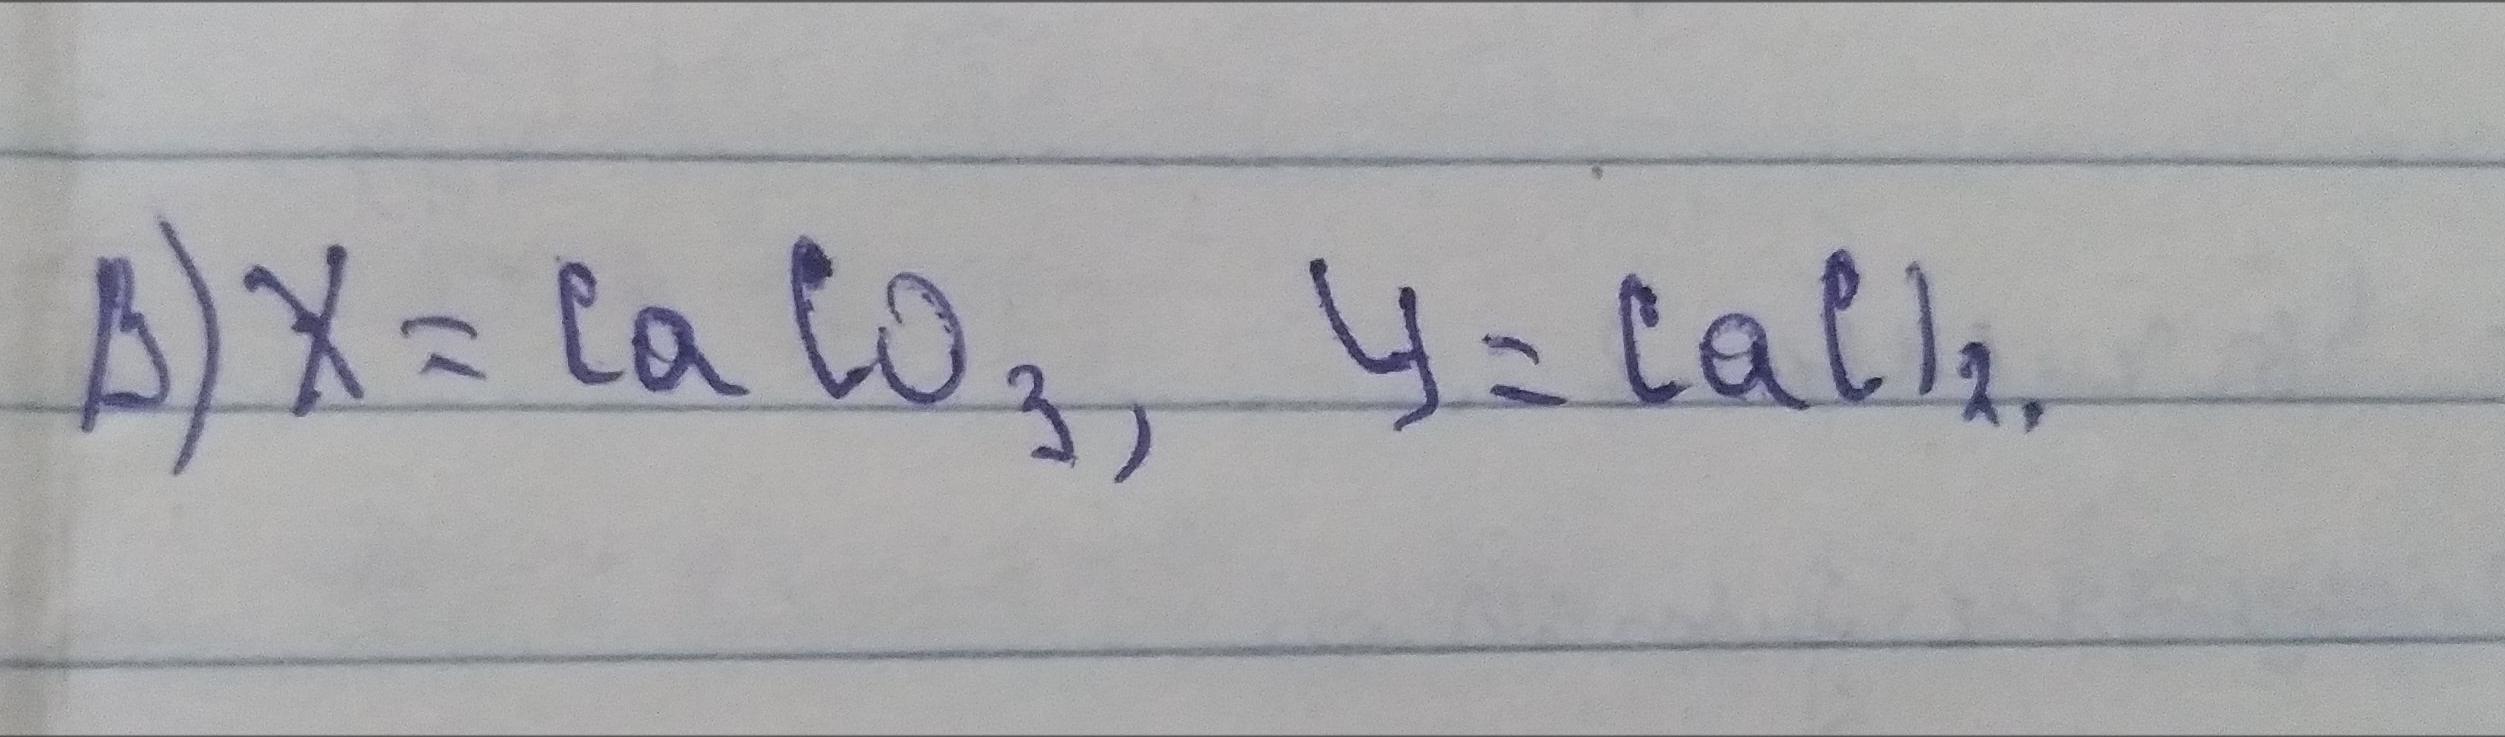 B) X = CaCO₃, Y = CaCl₂.